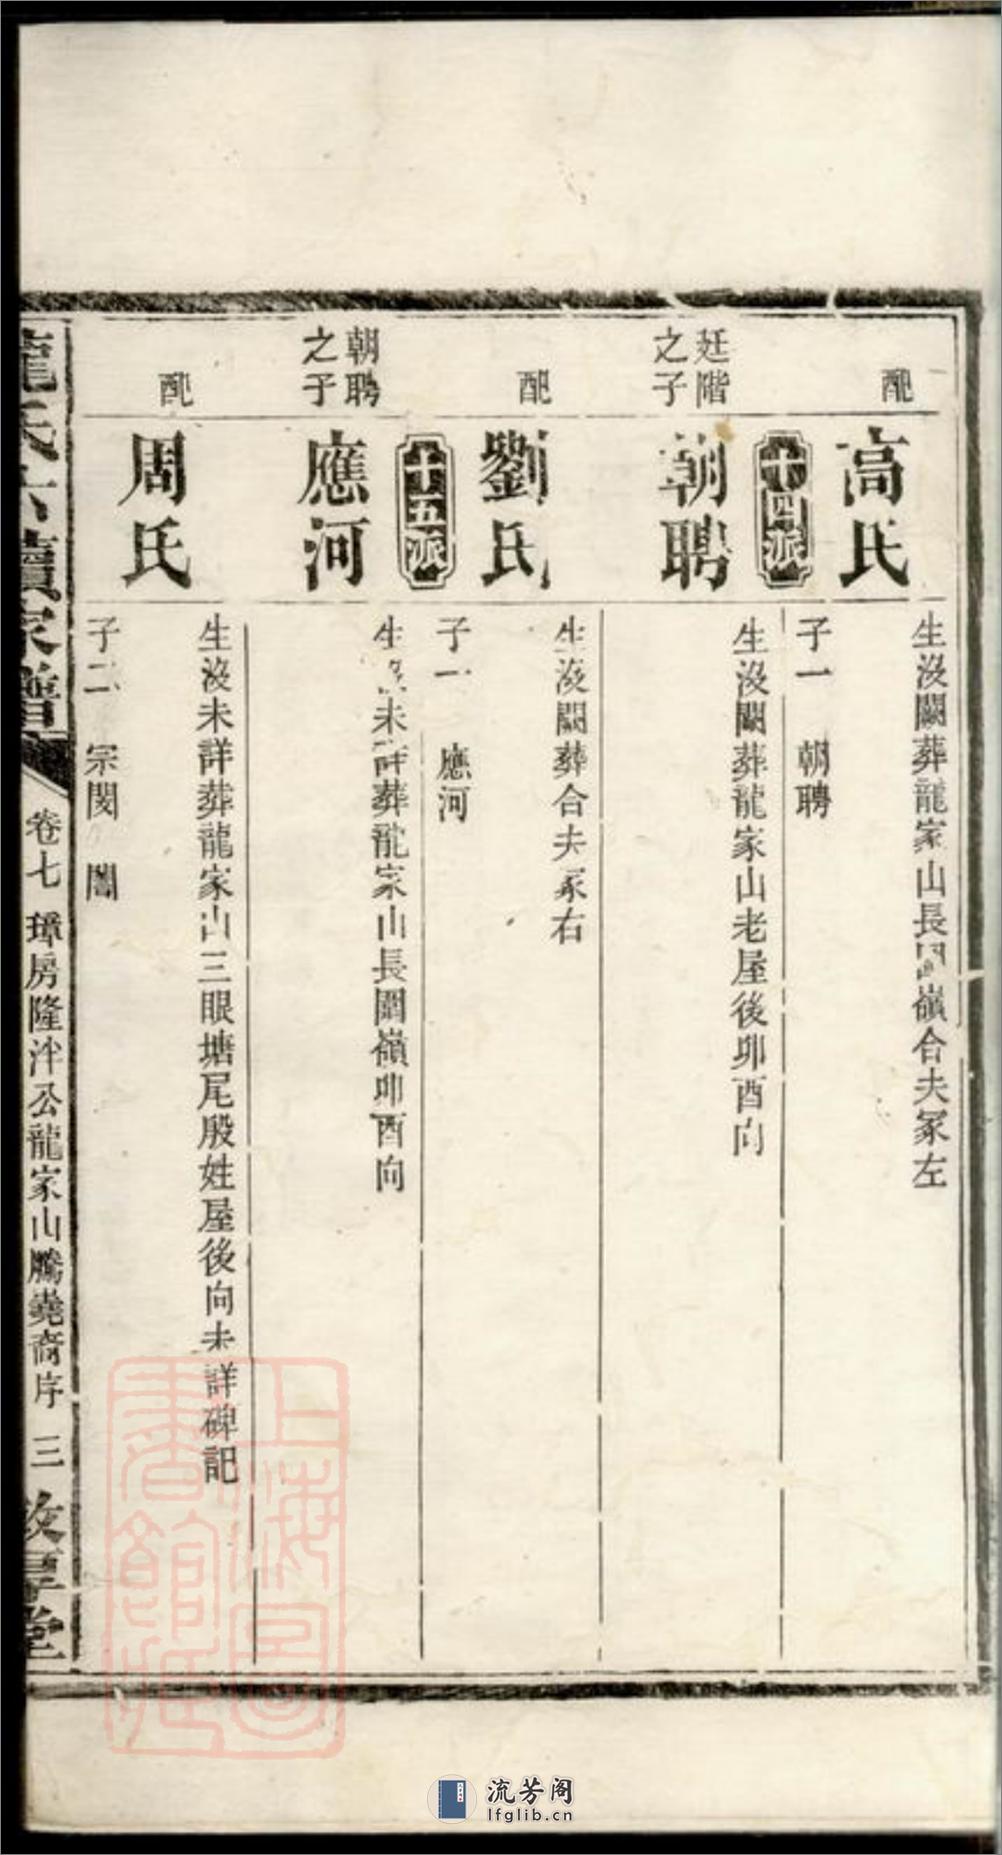 配
高氏
生沒闕葬龍家山長岡嶺合夫冢左
子一 朝聘
十四派
廷階之子
朝聘
生沒闕葬龍家山老屋後卯酉向
配
劉氏
生沒闕葬合夫冢右
子一 應河
十五派
朝聘之子
應河
生沒未詳葬龍家山長岡嶺卯酉向
配
周氏
生沒未詳葬龍家山三眼塘尾殷姓屋後向未詳碑記
子二 宗閔 誾
龍氏六續家譜
卷七 璋房隆泮公龍家山騰堯裔序 三
敦厚堂
上海圖書館藏
流芳阁
lfglib.cn